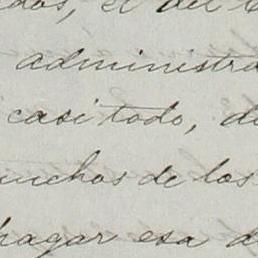 el del
administra
casi todo, de
muchos de los
pagar esa d